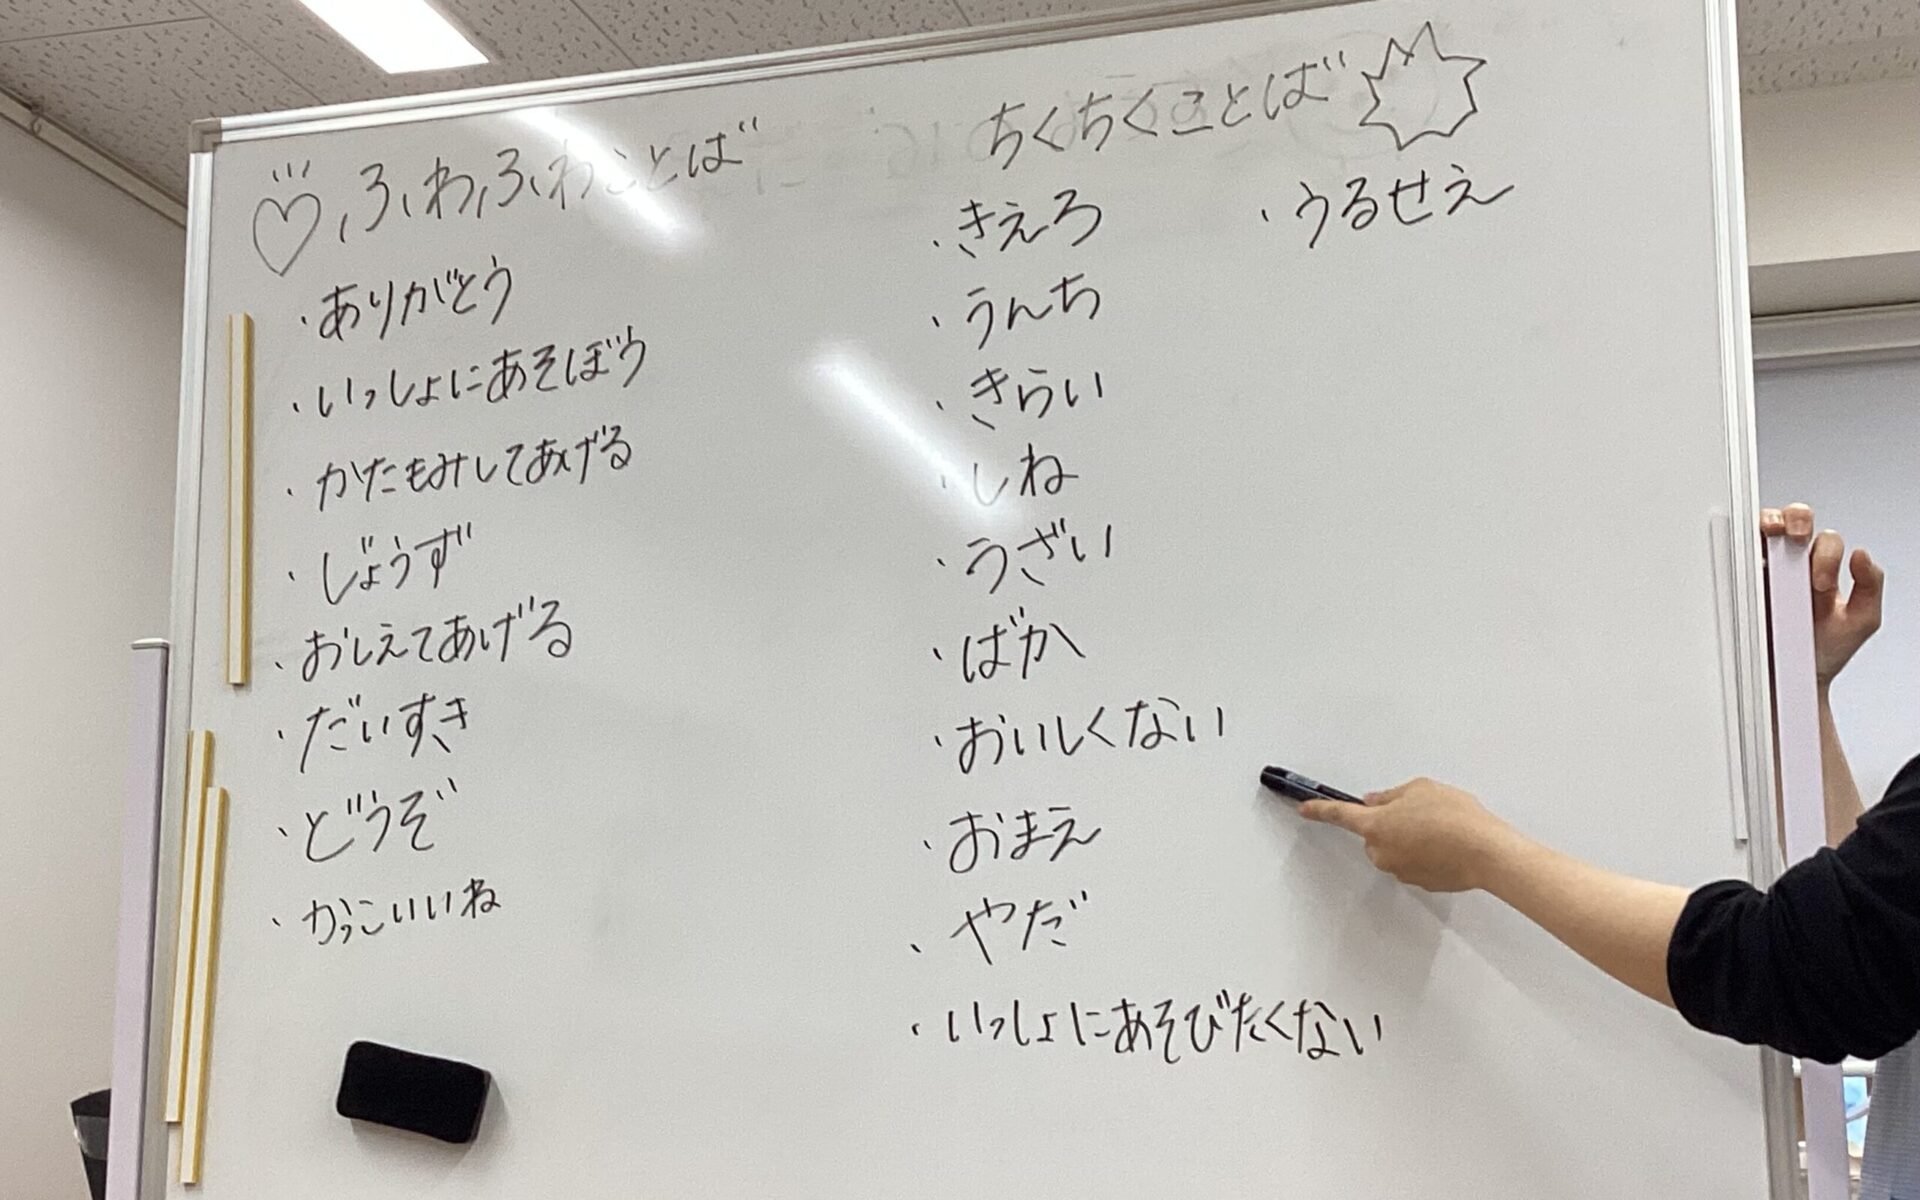 ふわふわことば
・ありがとう
・いっしょにあそぼう
・かたもみしてあげる
・じょうず
・おしえてあげる
・だいすき
・どうぞ
・かっこいいね
ちくちくことば
・きえろ
・うんち
・きらい
・しね
・うざい
・ばか
・おいしくない
・おまえ
・やだ
・いっしょにあそびたくない
・うるせえ